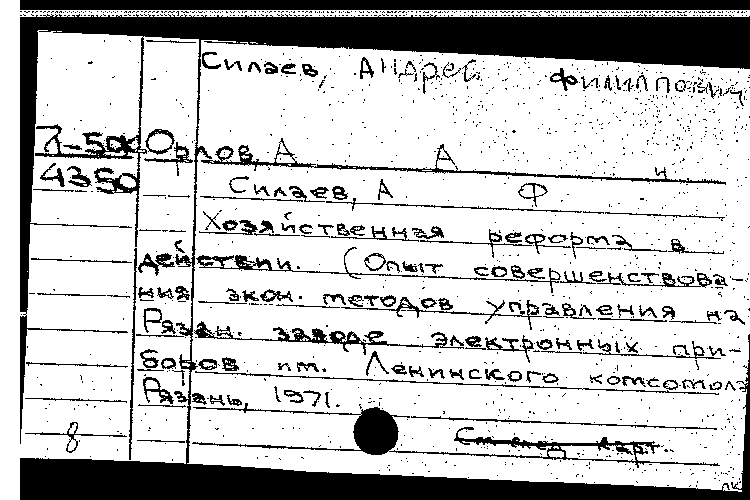 Силаев, Андрей Филиппович
Орлов, А А и
4350
Силаев, А Ф
Хозяйственная реформа в
действии. (Опыт совершенствова-
ния экон. методов управления на
Рязан. заводе электронных при-
боров им. Ленинского комсомола
Рязань, 1971.
8
См след карт.